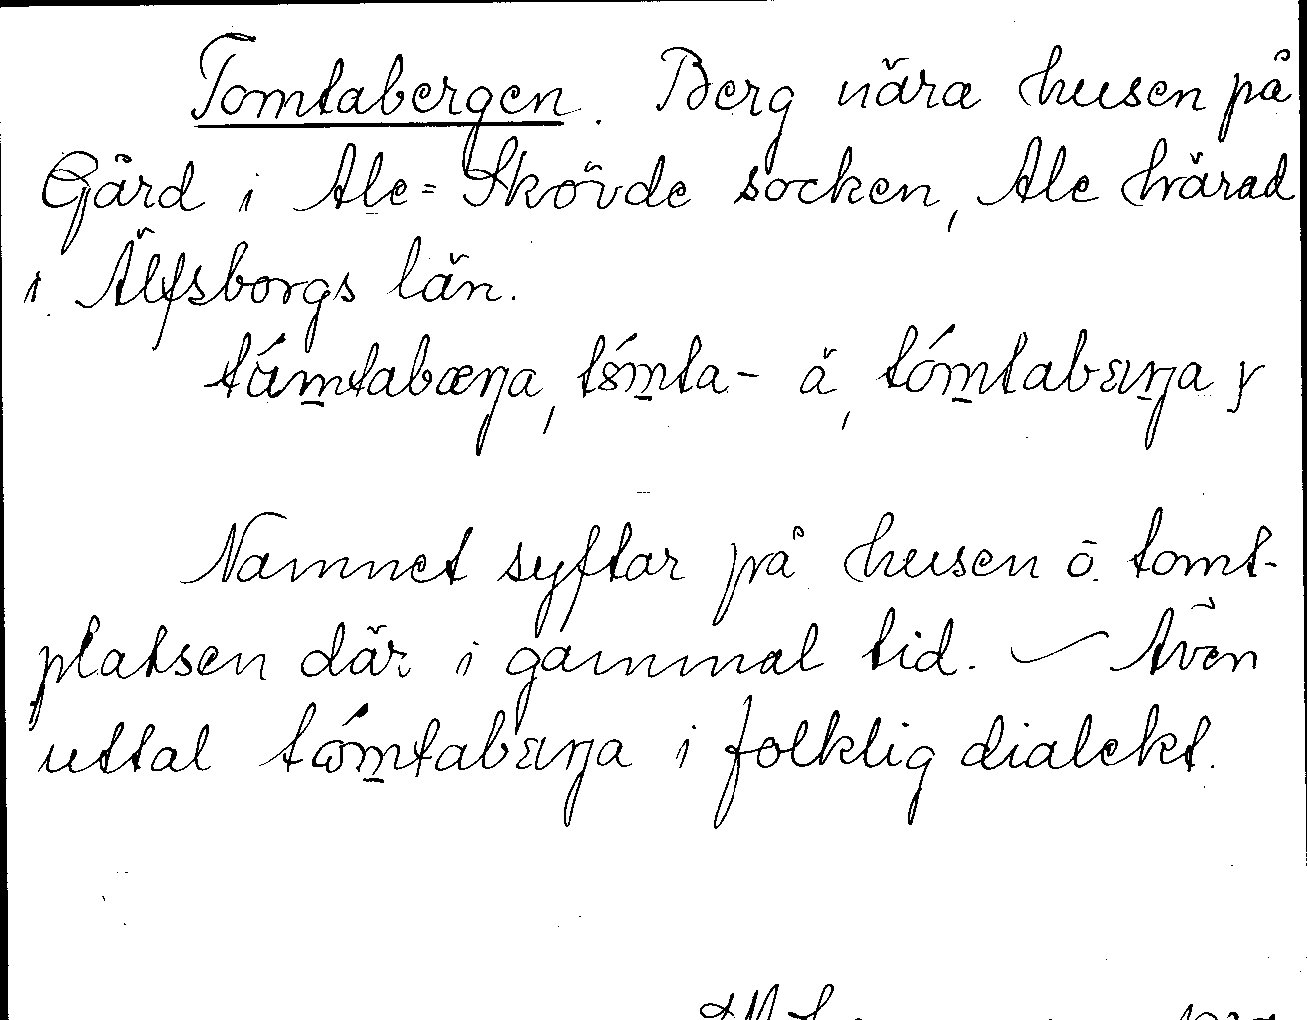 Tomtabergen. Berg nära husen på
Gård i Ale=Skövde socken, Ale härad
i Älfsborgs län.
tám̲tabæŋa, tóm̲ta- å, tóm̲tabɛŋa
Namnet syftar på husen o. tomt-
platsen där i gammal tid. – Även
uttal tóm̲tabɛŋa i folklig dialekt.